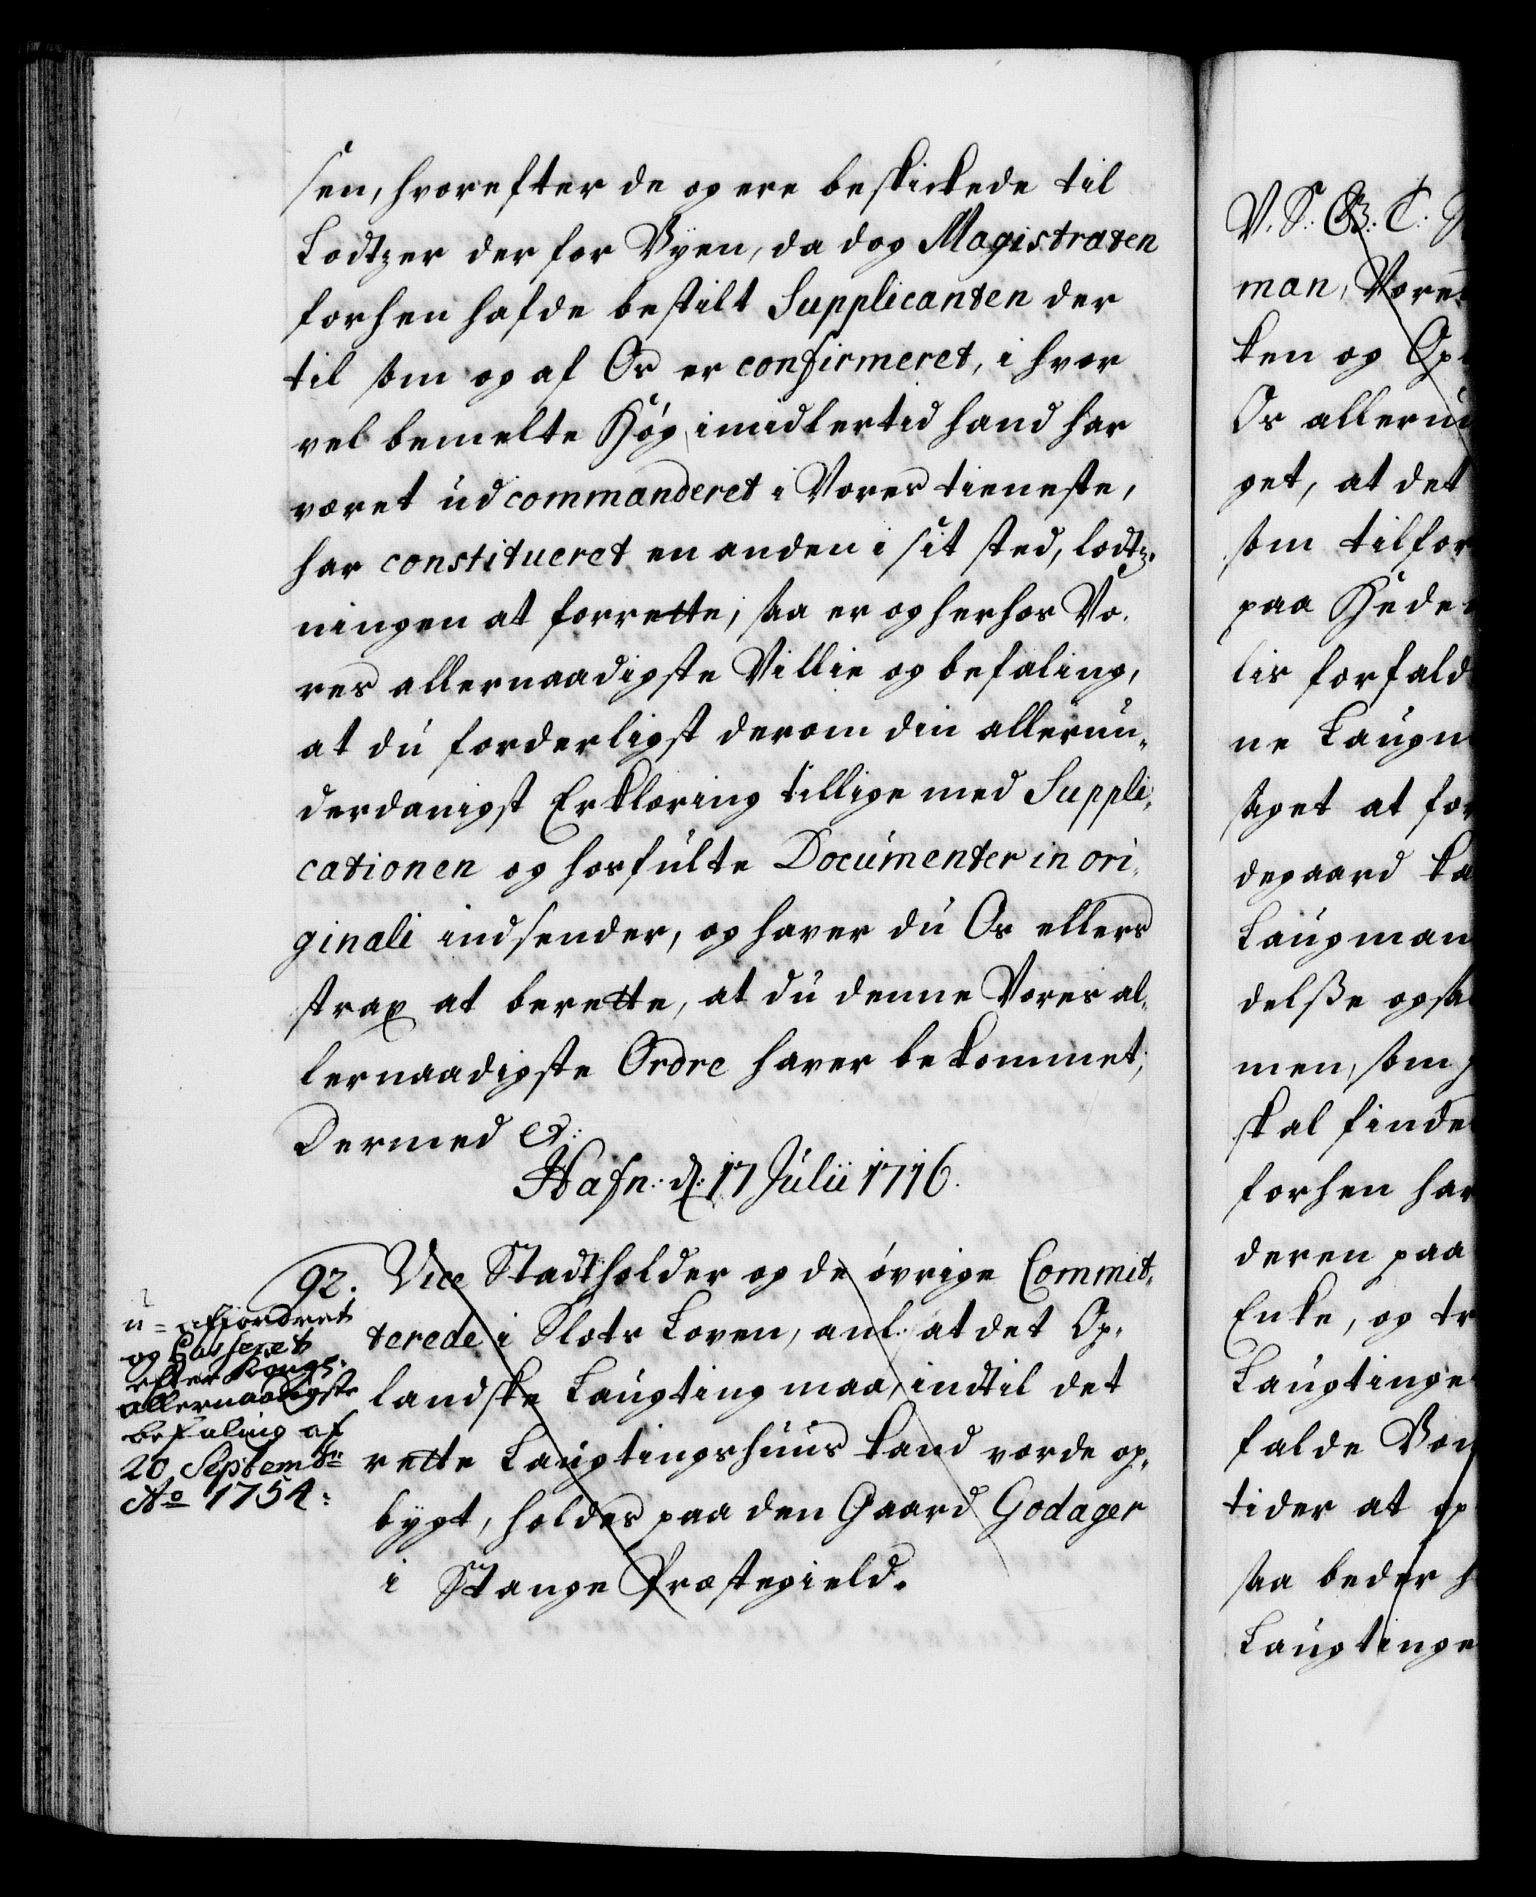 sen, hvorefter de og ere beskickede til
Lodtzer der for Byen, da dog Magistraten
forhen hafde bestilt Supplicanten der
til som og af Os er confirmeret, i hvor
vel bemelte Høg, imidlertid hand har
været udcommanderet i Vores tieneste,
har constitueret en anden i sit sted, lodtz,
ningen at forrette, saa er og herhos Vo,
res allernaadigste Villie og befaling,
at du forderligst derom din allerun,
derdanigst Erklæring tillige med Suppli,
cationen og hosfulte Documenter in ori,
ginali indsender, og haver du Os ellers
strax at berette, at du denne Vores al,
lernaadigste Ordre haver bekommet,
Dermed etc:
Hafn: d: 17 Julii 1716.
92. Vice Stadtholder og de øvrige Commit,
terede i Slots Loven, anl: at det Op,
landske Laugting maa, indtil det
rette Laugtingshuus kand vorde op,
bygt, holdes paa den Gaard Godager
i Stange Præstegield.
u-afjordret
og Casseret
efter Kongs:
allernaadigste
befaling af
20 Septembr:
Ao 1754:
V. S: G: T:
man, Vores
ken og Op
Os allerun
get, at det
som tilfor
paa Hede
lis forfald
ne Laugm
saget at for
degaard ka
Laugman
delsse og sa
men, som
skal finde
forhen har
deren paa
Enke, og tr
Laugtinge
falde Bon
tider at op
saa beder h
Laugtinge